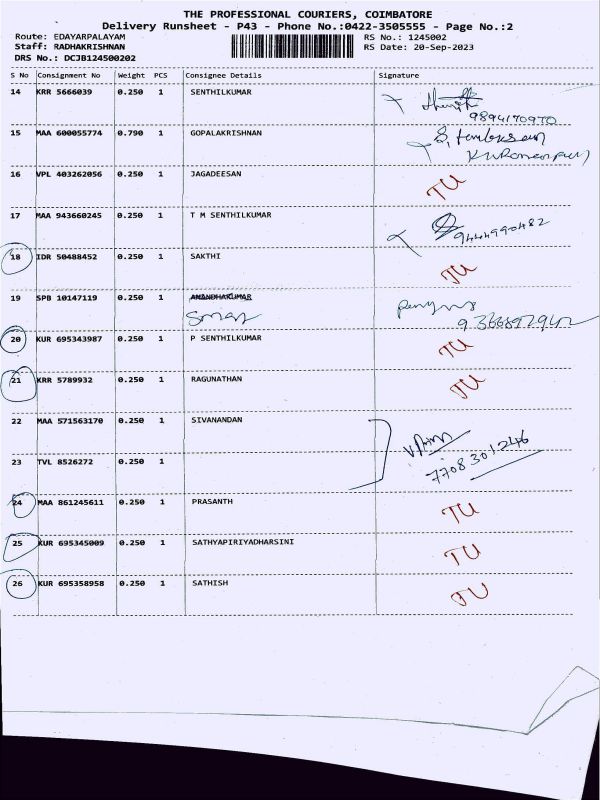 THE PROFESSIONAL COURIERS, COIMBATORE
Delivery Runsheet - P43 - Phone No.:0422-3505555 - Page No.:2
Route: EDAYARPALAYAM RS No.: 1245002
Staff: RADHAKRISHNAN RS Date: 20-Sep-2023
DRS No.: DCJB124500202
S No Consignment No Weight PCS Consignee Details Signature
14 KRR 5666039 0.250 1 SENTHILKUMAR
9894170970
15 MAA 600055774 0.790 1 GOPALAKRISHNAN
16 VPL 403262056 0.250 1 JAGADEESAN TU
17 MAA 943660245 0.250 1 T M SENTHILKUMAR
9444990482
18 IDR 50488452 0.250 1 SAKTHI TU
19 SPB 10147119 0.250 1 ANANDHAKUMAR
20 KUR 695343987 0.250 1 P SENTHILKUMAR TU
21 KRR 5789932 0.250 1 RAGUNATHAN TU
22 MAA 571563170 0.250 1 SIVANANDAN
23 TVL 8526272 0.250 1 7708301246
24 MAA 861245611 0.250 1 PRASANTH TU
25 KUR 695345009 0.250 1 SATHYAPIRIYADHARSINI TU
26 KUR 695358958 0.250 1 SATHISH TU